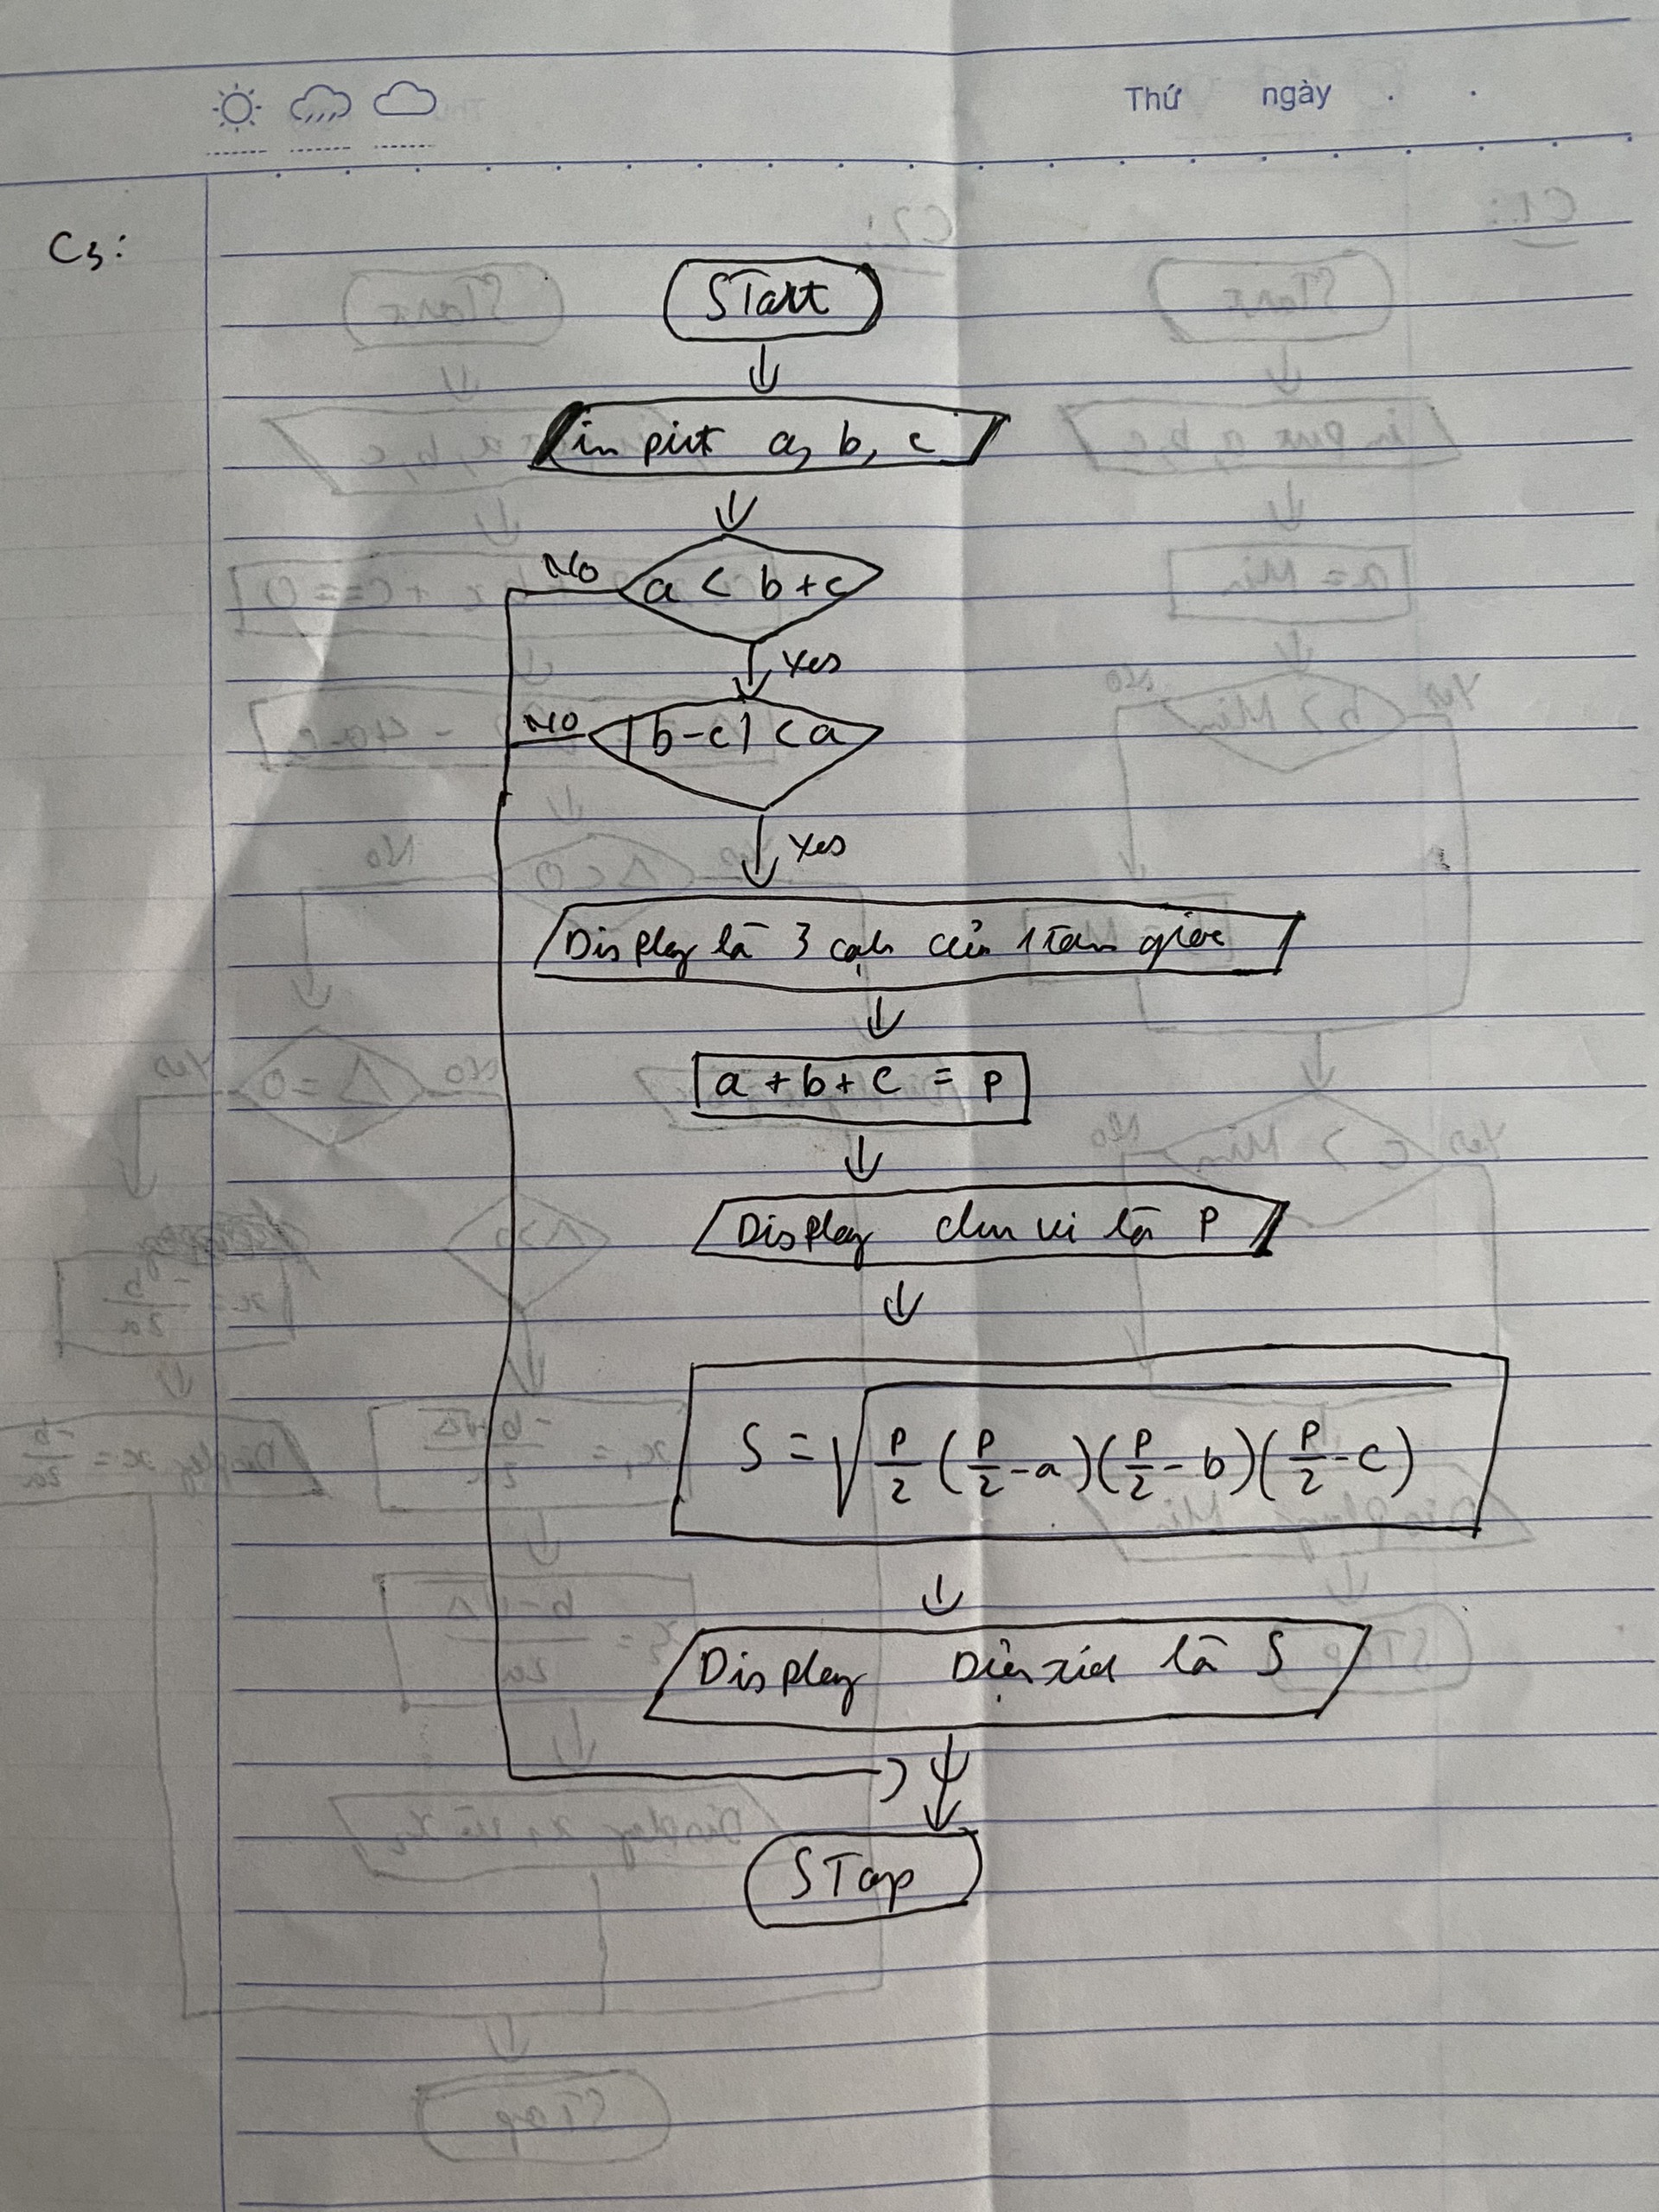 Thứ ngày
C3:
START
input a, b, c
a < b+c
No
Yes
|b-c| < a
No
Yes
Display là 3 cạh của 1 tam giác
a + b + c = P
Display chu vi là P
S = √(P/2 (P/2 - a)(P/2 - b)(P/2 - c))
Display là S
STop